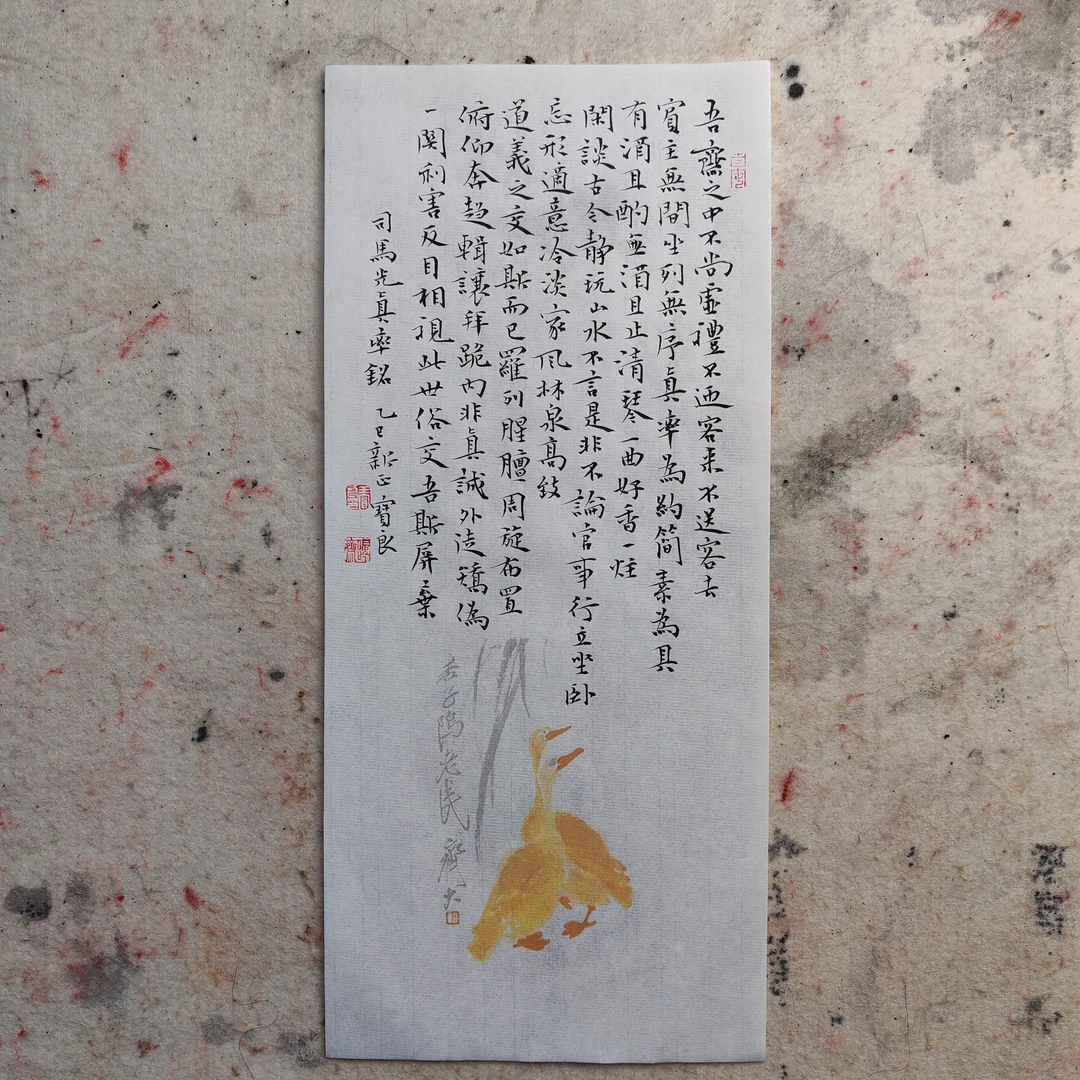 吾齋之中不尚虛禮不迎客來不送客去
賓主無間坐列無序眞率為約簡素為具
有酒且酌無酒且止清琴一曲好香一炷
閑談古今靜玩山水不言是非不論官事行立坐臥
忘形適意冷淡家風林泉高致
道義之交如斯而已羅列腥膻周旋布置
俯仰奔趨輯讓拜跪內非眞誠外徒矯偽
一關利害反目相視此世俗交吾斯屏棄
司馬光眞率銘 乙巳新正寶良
杏子隖老民 齊大